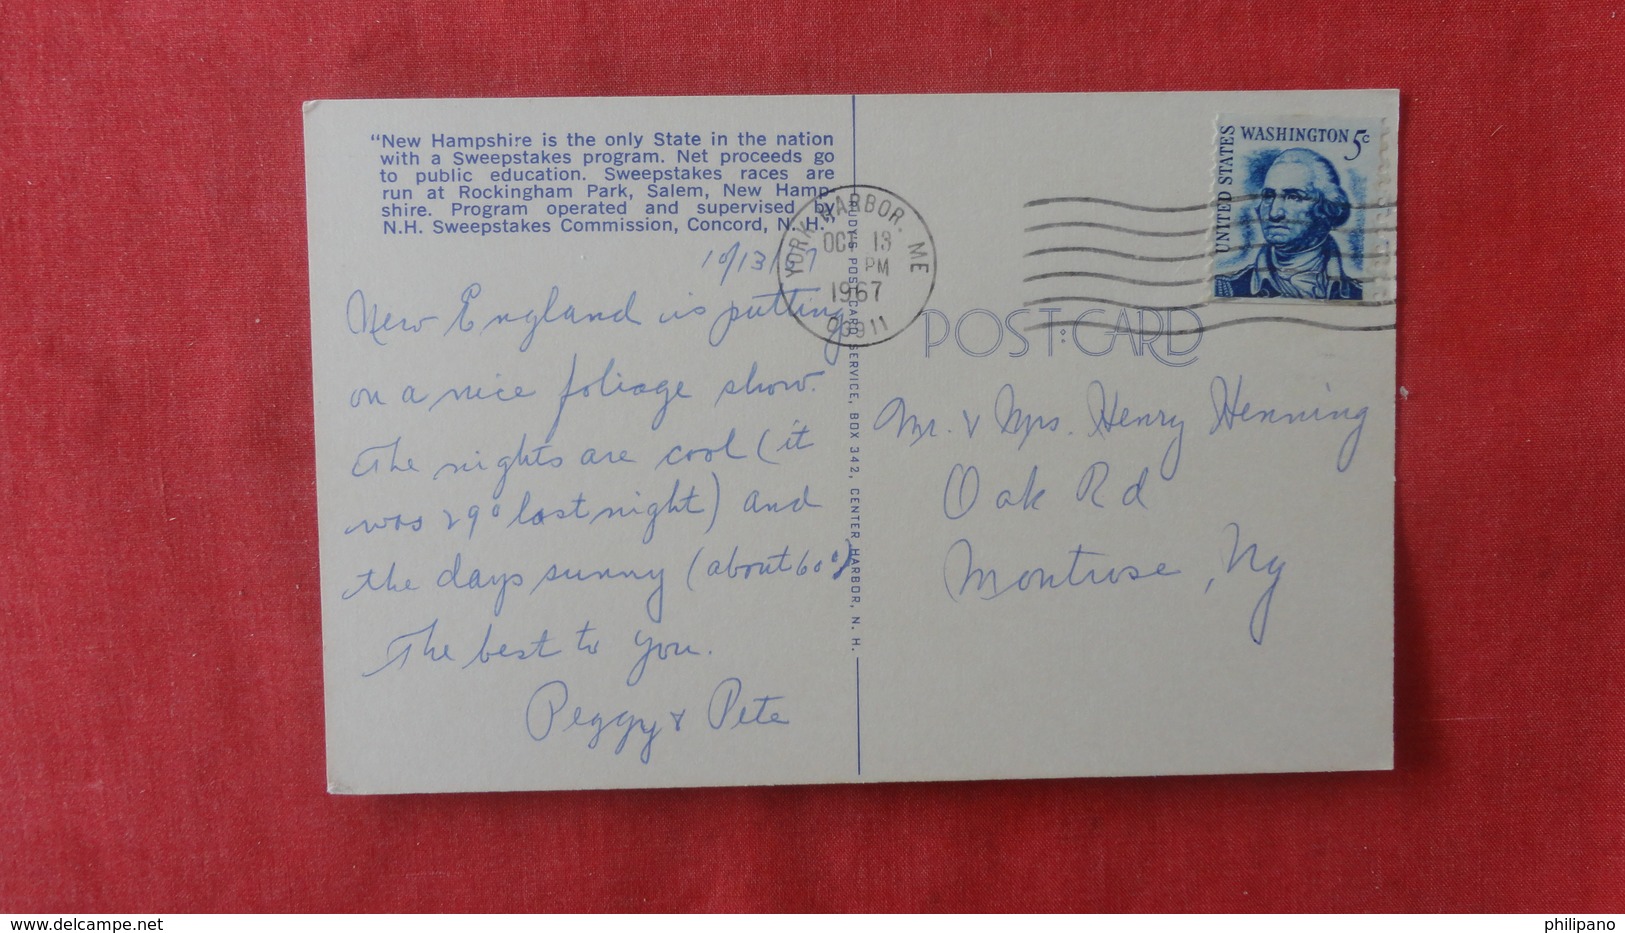 "New Hampshire is the only State in the nation
with a Sweepstakes program. Net proceeds go
to public education. Sweepstakes races are
run at Rockingham Park, Salem, New Hamp-
shire. Program operated and supervised by
N.H. Sweepstakes Commission, Concord, N. H."
10/13/67
New England is putting
on a nice foliage show.
The nights are cool (it
was 29° last night) and
the days sunny (about 60°)
The best to you.
Peggy & Pete
RUDY'S POST CARD SERVICE, BOX 342, CENTER HARBOR, N. H.
YORK HARBOR, ME
OCT 13
PM
1967
03911
UNITED STATES
WASHINGTON 5c
POST CARD
Mr. & Mrs. Henry Henning
Oak Rd
Montrose, Ny
www.delcampe.net
philipano